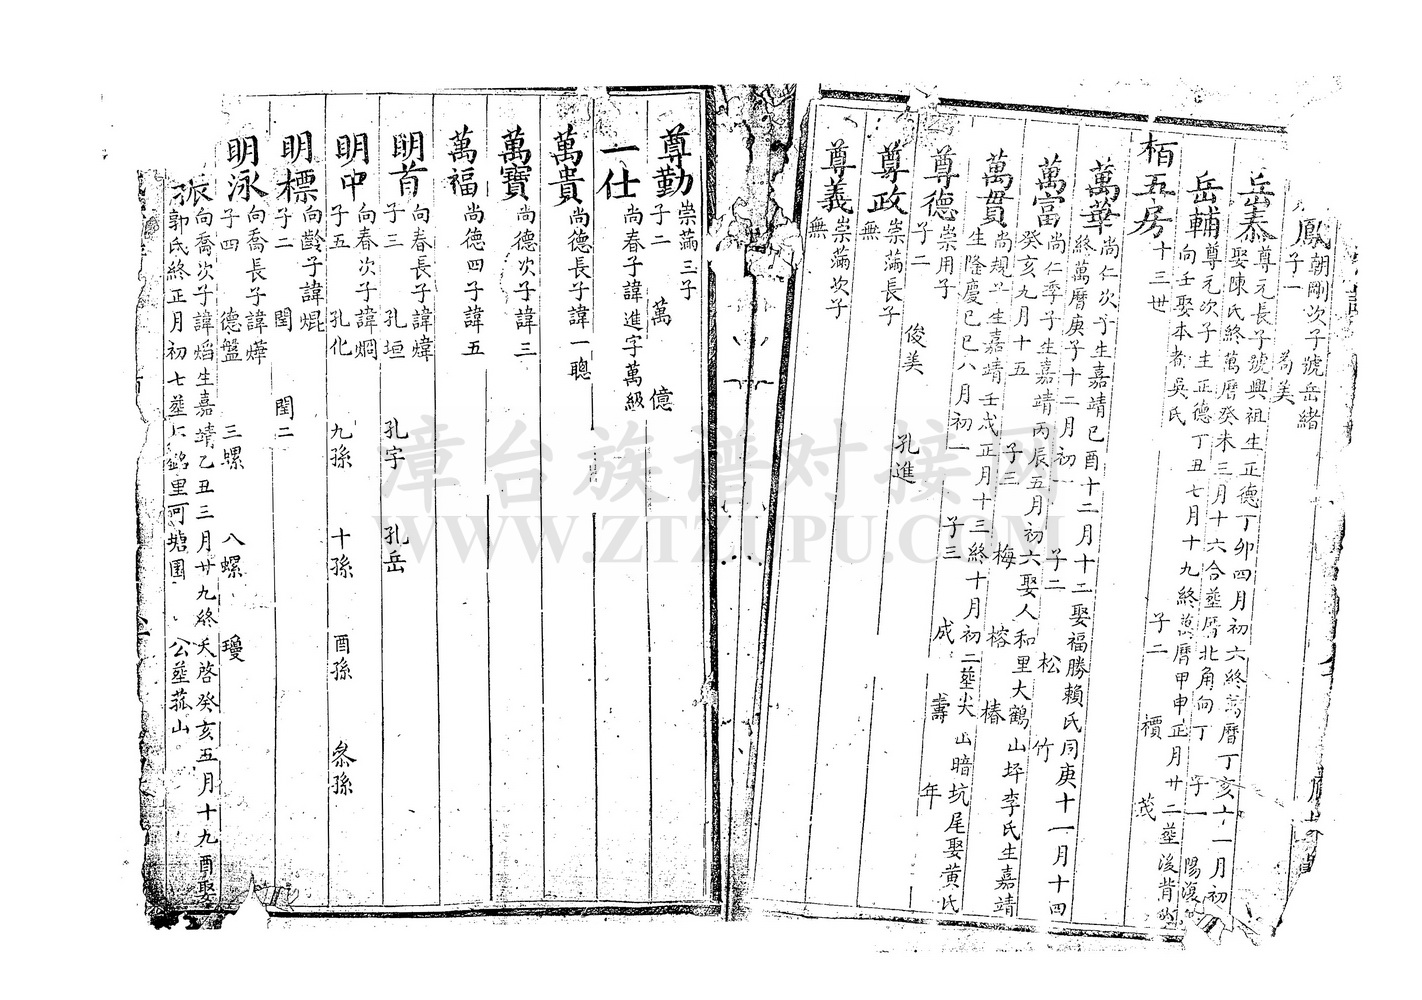 鳳 朝剛次子號岳緒
子一 為美
岳泰 尊元長子號興祖生正德丁卯四月初六終萬曆丁亥十一月初
娶陳氏終萬曆癸未三月十六合塟厝北角向丁 子一 陽
岳輔 尊元次子生正德丁丑七月十九終萬曆甲申正月廿二塟後背
向壬娶本者吳氏 子二 襀 茂
栢五房 十三世
萬華 尚仁次子生嘉靖己酉十二月十二娶福勝賴氏同庚十一月十四
終萬曆庚子十二月初一 子二 松 竹
萬富 尚仁季子生嘉靖丙辰五月初六娶人和里大鶴山坪李氏生嘉靖
癸亥九月十五 子三 梅 榕 椿
萬貫 尚規子生嘉靖壬戌正月十三終十月初二塟尖山暗坑尾娶黄氏
生隆慶己巳八月初一 子三 成 壽 年
尊德 崇用子
子二 俊美 孔進
尊政 崇滿長子
無
尊義 崇滿次子
無
尊勤 崇滿三子
子二 萬 億
一仕 尚春子諱進字萬級
萬貴 尚德長子諱一聰
萬寶 尚德次子諱三
萬福 尚德四子諱五
明首 向春長子諱煒
子三 孔垣 孔宇 孔岳
明中 向春次子諱烱
子五 孔化 九孫 十孫 酉孫 叅孫
明標 向齡子諱焜
子二 閏 閏二
明泳 向喬長子諱燁
子四 德盤 三螺 八螺 瓊
振 向喬次子諱熖生嘉靖乙丑三月廿九終天啓癸亥五月十九酉娶
郭氏終正月初七塟上銘里可塘園 公塟菰山
漳台族谱对接网
WWW.ZTZUPU.COM